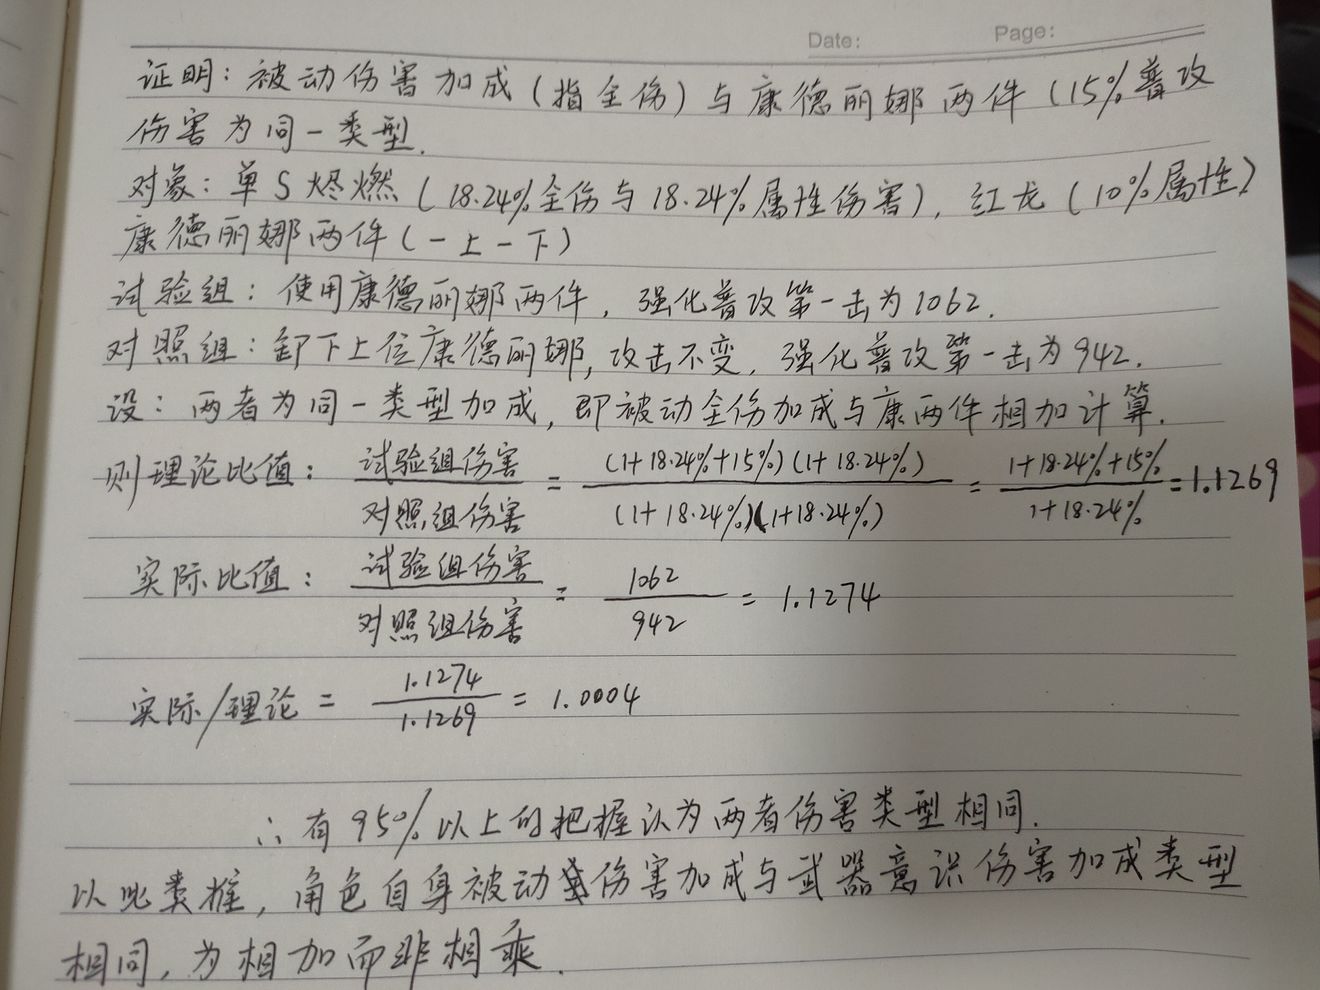 Date: Page:
证明：被动伤害加成（指全伤）与康德丽娜两件（15%普攻
伤害为同一类型.
对象：单S烬燃（18.24%全伤与18.24%属性伤害），红龙（10%属性）
康德丽娜两件（一上一下）
试验组：使用康德丽娜两件，强化普攻第一击为1062.
对照组：卸下上位康德丽娜，攻击不变，强化普攻第一击为942.
设：两者为同一类型加成，即被动全伤加成与康两件相加计算.
则理论比值：试验组伤害/对照组伤害 = (1+18.24%+15%)(1+18.24%)/(1+18.24%)(1+18.24%) = 1+18.24%+15%/1+18.24% = 1.1269
实际比值：试验组伤害/对照组伤害 = 1062/942 = 1.1274
实际/理论 = 1.1274/1.1269 = 1.0004
∴有95%以上的把握认为两者伤害类型相同.
以此类推，角色自身被动伤害加成与武器意识伤害加成类型
相同，为相加而非相乘.